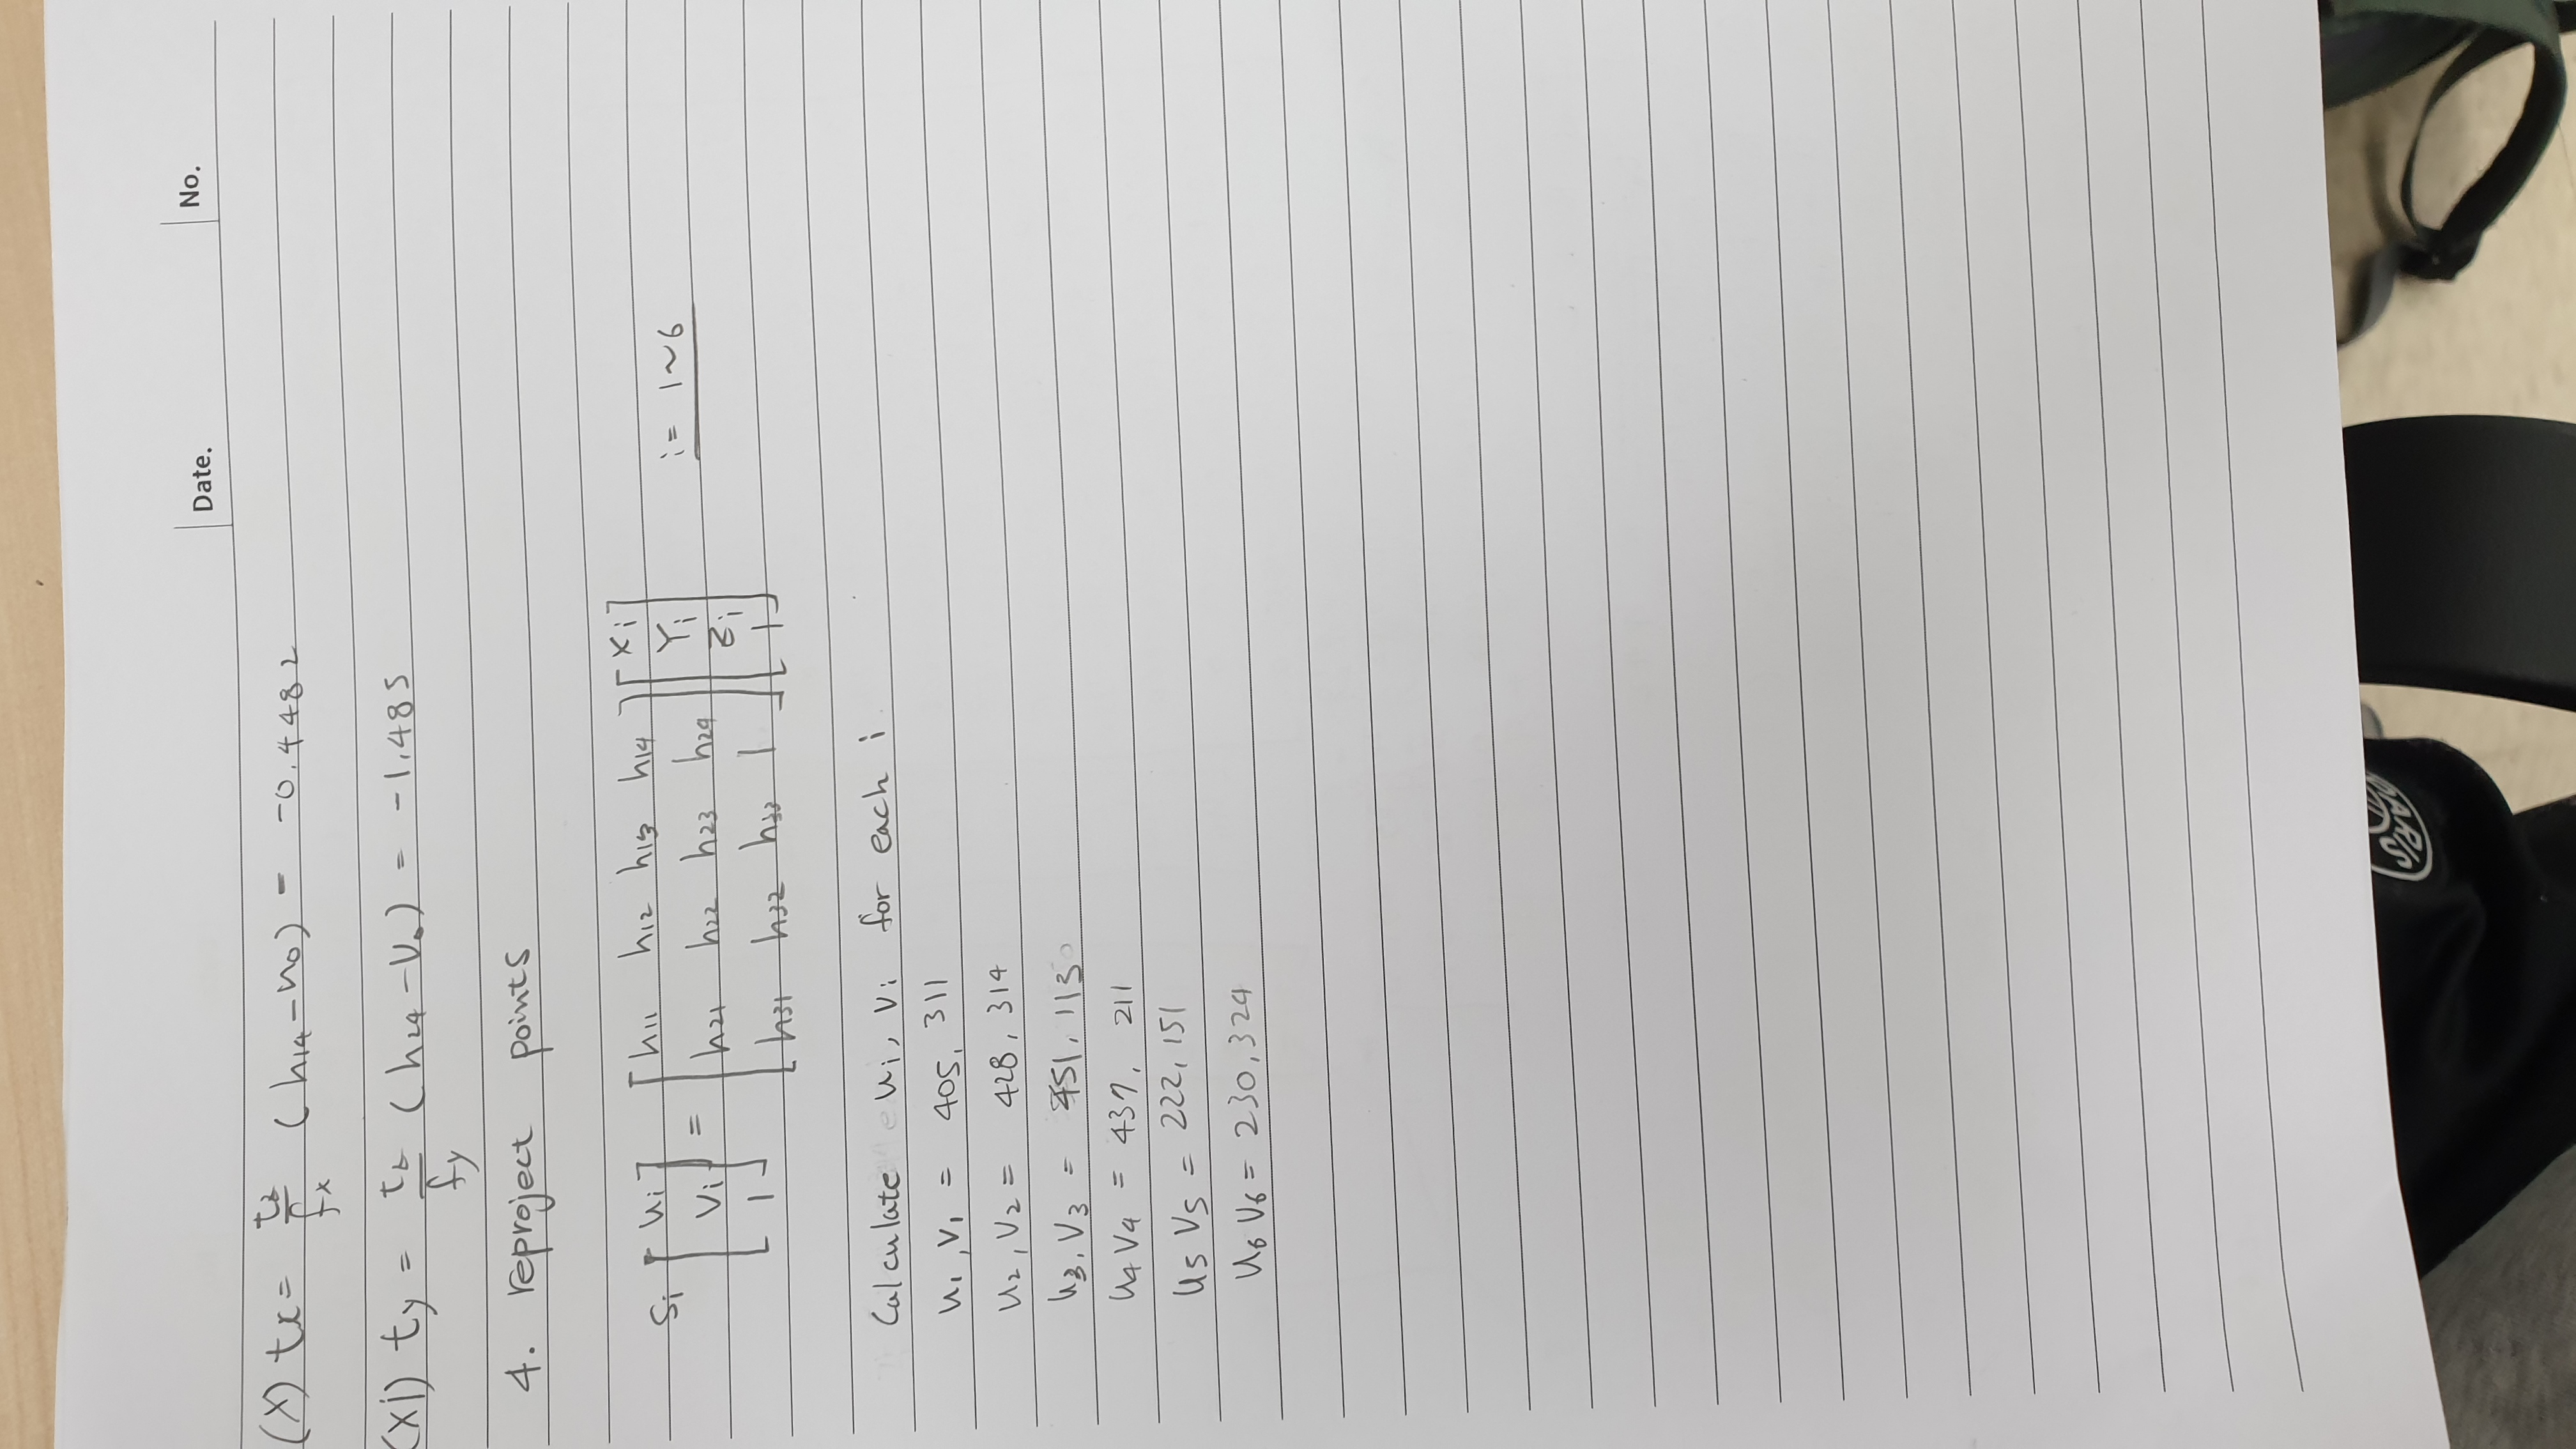 Date. No.
(X) tx = tz/fx (h14 - u0) = -0.4482
(xi) ty = tz/fy (h24 - v0) = -1.485
4. reproject points
si [ui vi 1] = [h11 h12 h13 h14 h21 h22 h23 h24 h31 h32 h33 1] [Xi Yi Zi 1] i = 1~6
Calculate ui, vi for each i
u1, v1 = 405, 311
u2, v2 = 428, 314
u3, v3 = 451, 113
u4 v4 = 437, 211
u5 v5 = 222, 151
u6 v6 = 230, 324
PARIS